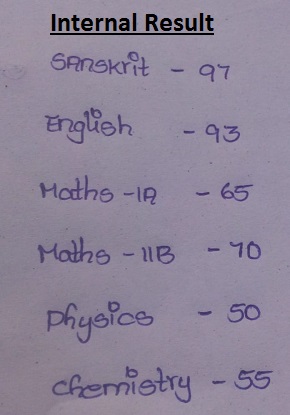 Internal Result
Sanskrit - 97
English - 93
Maths - IA - 65
Maths - IIB - 70
Physics - 50
Chemistry - 55